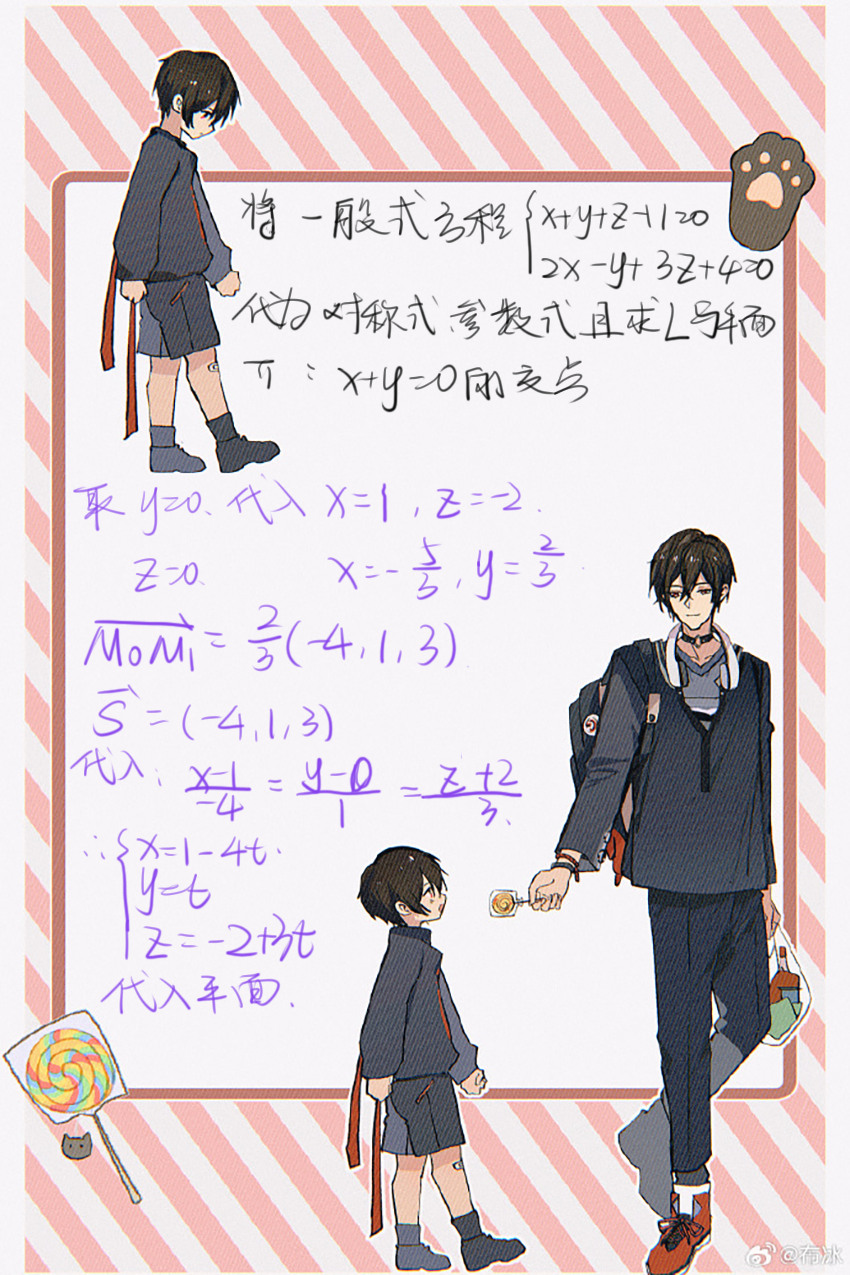 将一般式方程{x+y+z-11=0
2x-y+3z+4=0
代为对称式参数式且求L与平面
π:x+y=0的交点
取y=0.代入x=1,z=-2.
z=0. x=-5/3,y=2/3.
M₀M₁=2/3(-4,1,3)
S=(-4,1,3)
代入: x-1/-4=y-0/1=z+2/3.
∴{x=1-4t.
y=t
z=-2+3t
代入平面.
@布冰